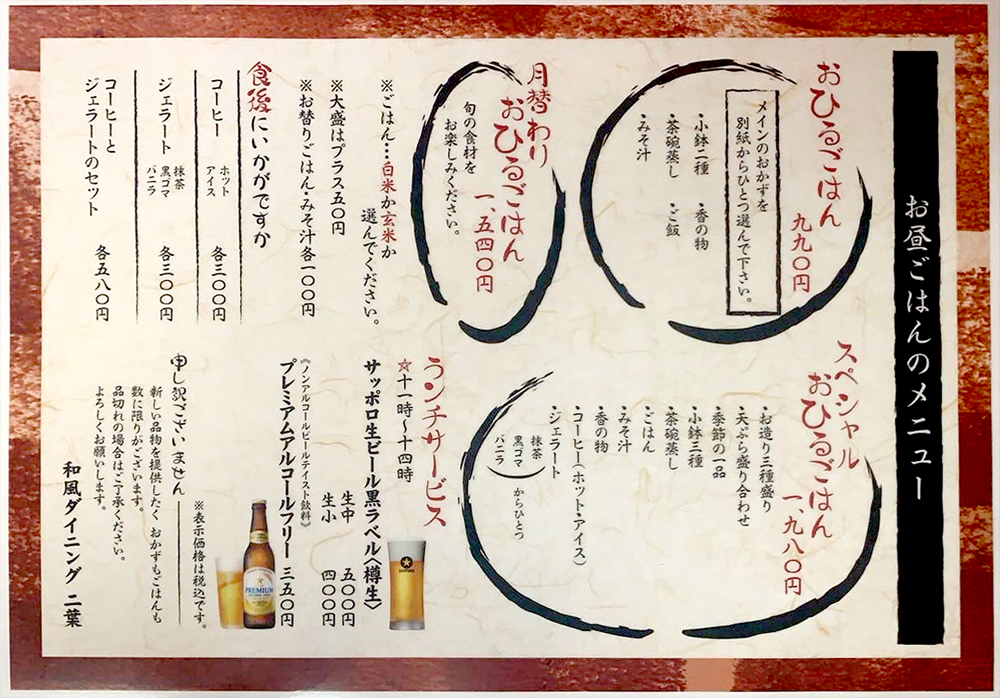 お昼ごはんのメニュー
おひるごはん
九九〇円
メインのおかずを
別紙からひとつ選んで下さい。
・小鉢二種
・香の物
・茶碗蒸し
・ご飯
・みそ汁
月替わり
おひるごはん
一、五四〇円
旬の食材を
お楽しみください。
※ごはん…白米か玄米か
選んでください。
※大盛はプラス五〇円
※お替りごはん・みそ汁各一〇〇円
食後にいかがですか
コーヒー ホット アイス 各三〇〇円
ジェラート 抹茶 黒ゴマ バニラ 各三〇〇円
コーヒーと
ジェラートのセット 各五八〇円
スペシャル
おひるごはん
一、九八〇円
・お造り三種盛り
・天ぷら盛り合わせ
・季節の一品
・小鉢三種
・茶碗蒸し
・ごはん
・みそ汁
・香の物
・コーヒー(ホット・アイス)
・ジェラート
抹茶
黒ゴマ
バニラ
からひとつ
ランチサービス
☆十一時〜十四時
サッポロ生ビール黒ラベル〈樽生〉
生中 五〇〇円
生小 四〇〇円
《ノンアルコールビールテイスト飲料》
プレミアムアルコールフリー 三五〇円
PREMIUM
※表示価格は税込です。
申し訳ございません
新しい品物を提供したく おかずもごはんも
数に限りがございます。
品切れの場合はご了承ください。
よろしくお願いします。
和風ダイニング 二葉